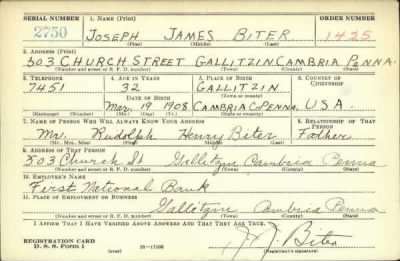 SERIAL NUMBER 1. NAME (Print) ORDER NUMBER
2750 JOSEPH JAMES BITER 1425
(First) (Middle) (Last)
2. ADDRESS (Print)
503 CHURCH STREET GALLITZIN CAMBRIA PENNA.
(Number and street or R. F. D. number) (Town) (County) (State)
3. TELEPHONE 4. AGE IN YEARS 5. PLACE OF BIRTH 6. COUNTRY OF CITIZENSHIP
7451 32 GALLITZIN
DATE OF BIRTH (Town or county)
Mar. 19 1908 CAMBRIA CO PENNA. U.S.A.
(Mo.) (Day) (Yr.) (State or country)
7. NAME OF PERSON WHO WILL ALWAYS KNOW YOUR ADDRESS 8. RELATIONSHIP OF THAT PERSON
Mr. Rudolph Henry Biter Father
(Mr., Mrs., Miss) (First) (Middle) (Last)
9. ADDRESS OF THAT PERSON
503 Church St Gallitzin Cambria Penna
(Number and street or R. F. D. number) (Town) (County) (State)
10. EMPLOYER'S NAME
First National Bank
11. PLACE OF EMPLOYMENT OR BUSINESS
Gallitzin Cambria Penna
(Number and street or R. F. D. number) (Town) (County) (State)
I AFFIRM THAT I HAVE VERIFIED ABOVE ANSWERS AND THAT THEY ARE TRUE.
REGISTRATION CARD
D. S. S. Form 1 16-17105 J. J. Biter
(Registrant's signature)